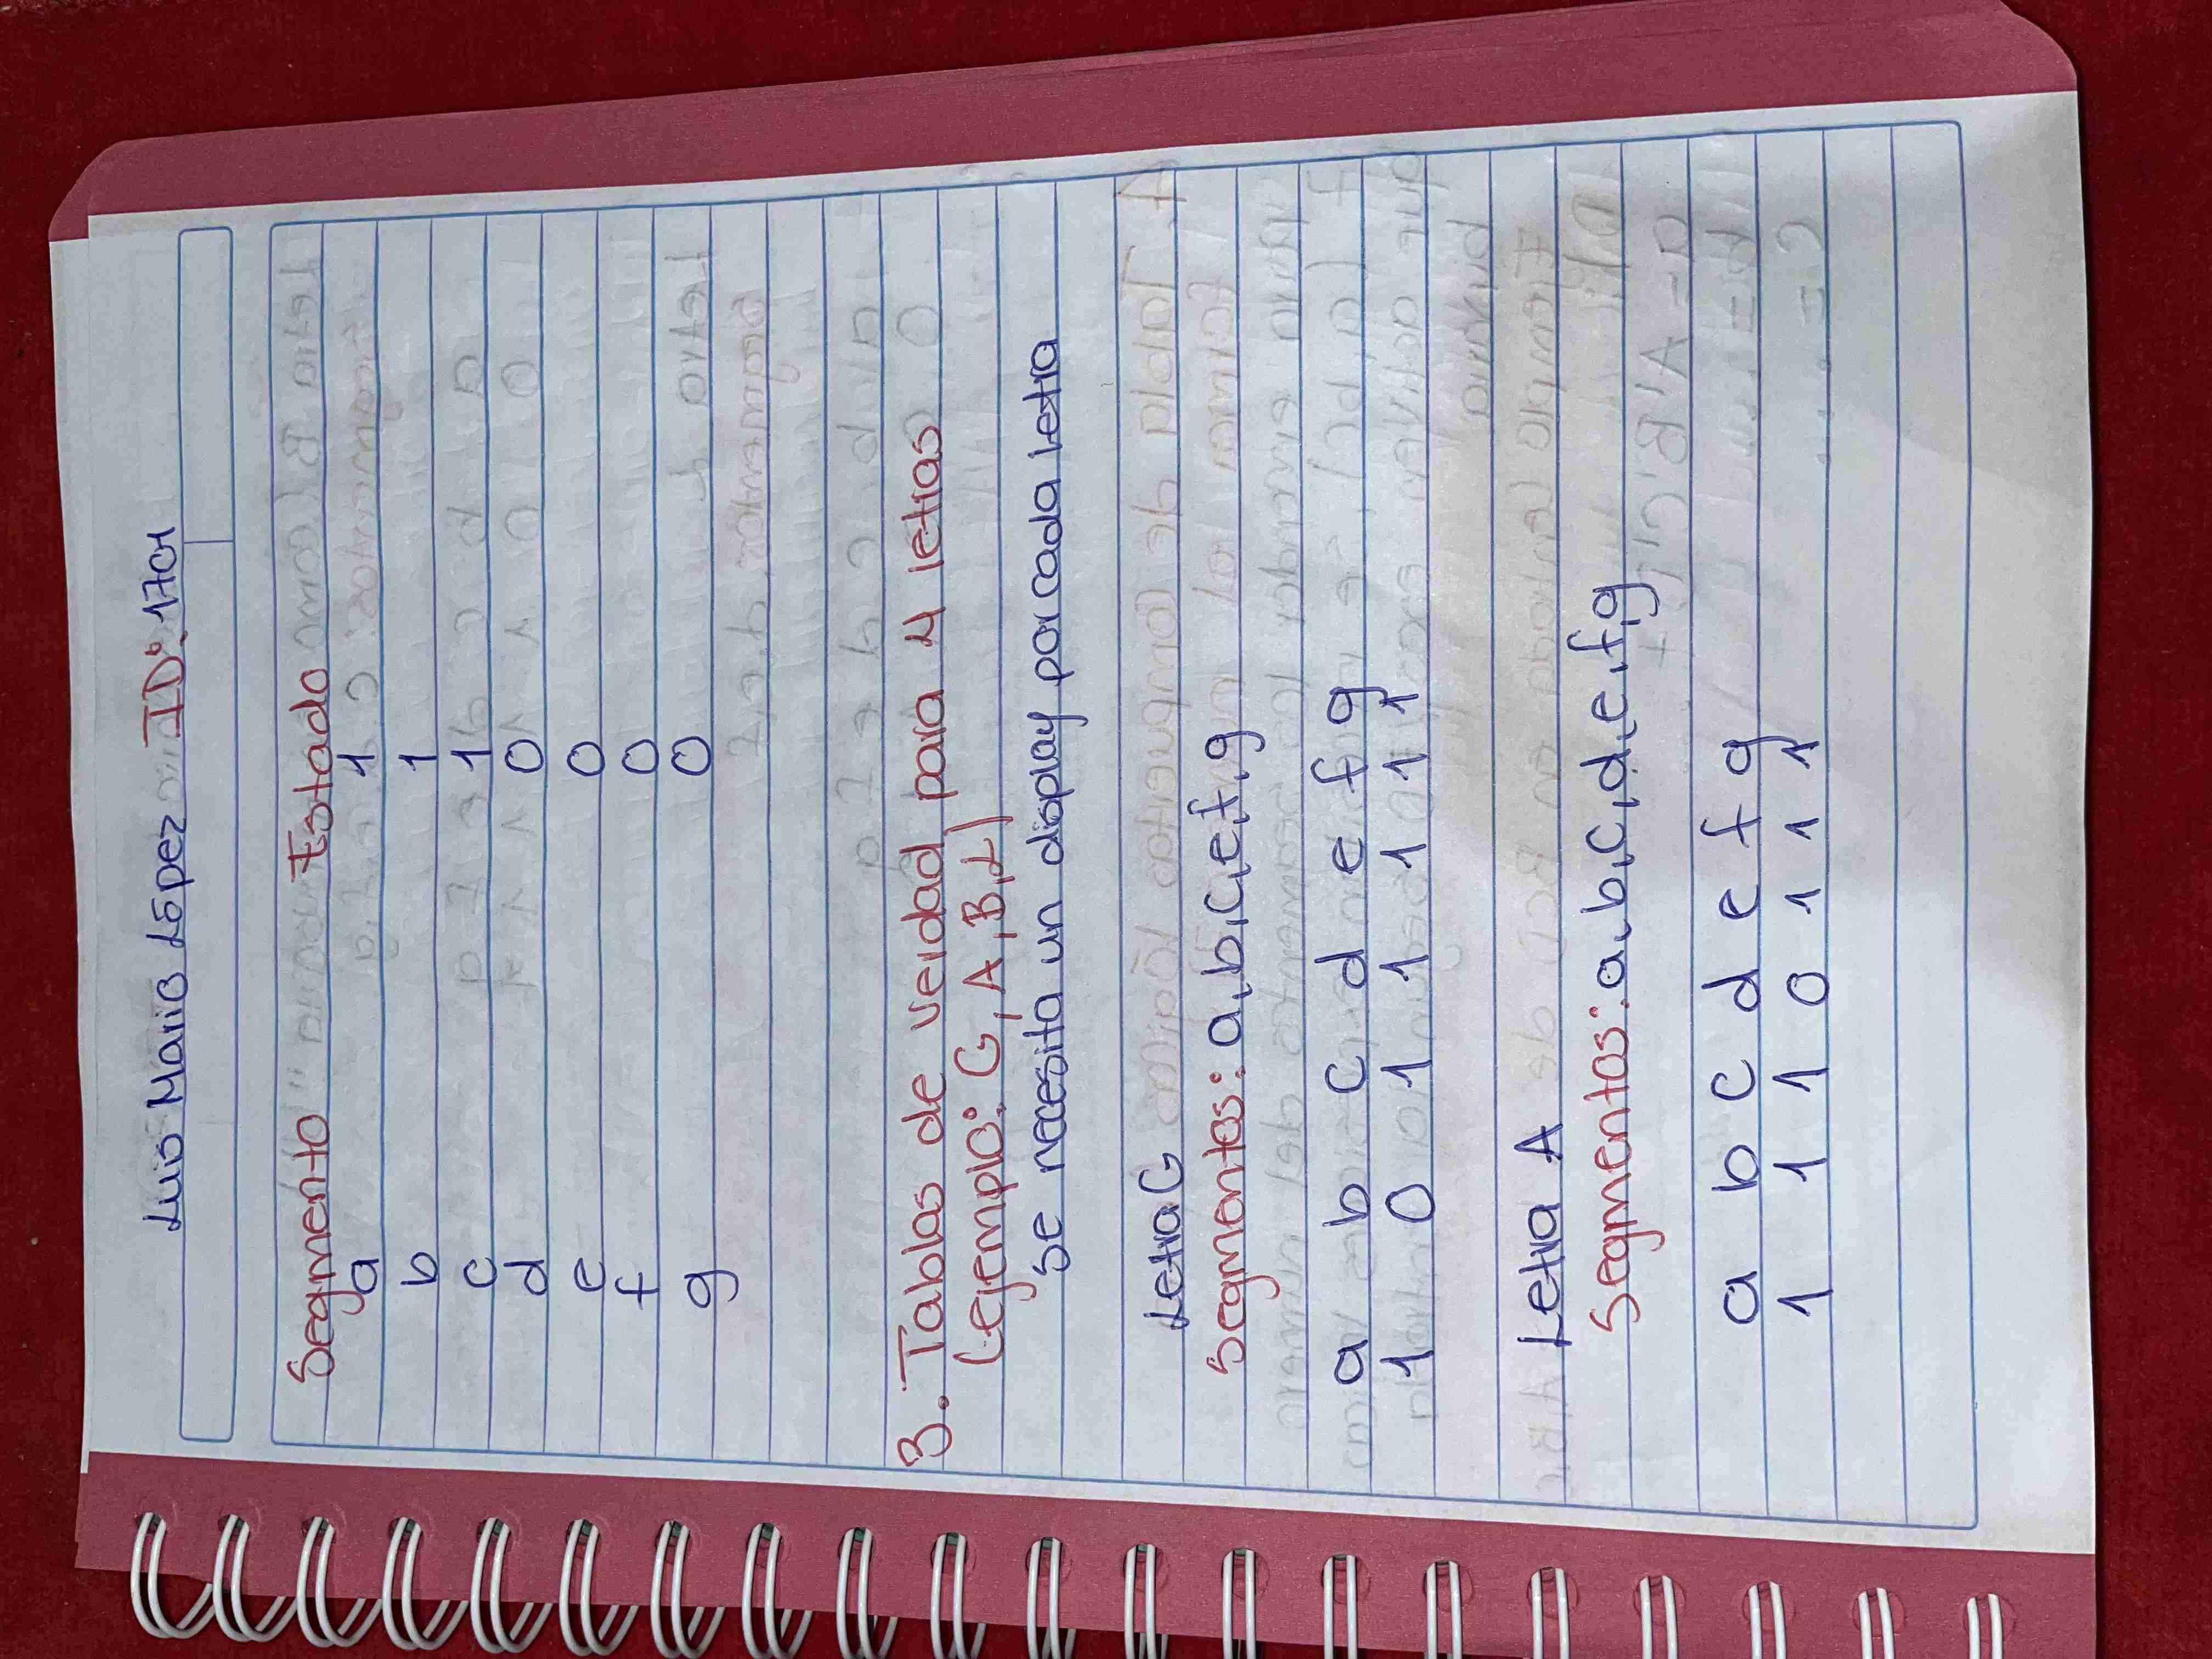 Luis Mario López ID: 1701
Segmento Estado
a 1
b 1
c 1
d 0
e 0
f 0
g 0
3. Tablas de verdad para 4 letras
(ejemplo: G, A, B, L)
Se necesita un display por cada letra
Letra G
Segmentos: a, b, c, e, f, g
a b c d e f g
1 0 1 1 1 1 1
Letra A
Segmentos: a, b, c, d, e, f, g
a b c d e f g
1 1 1 0 1 1 1